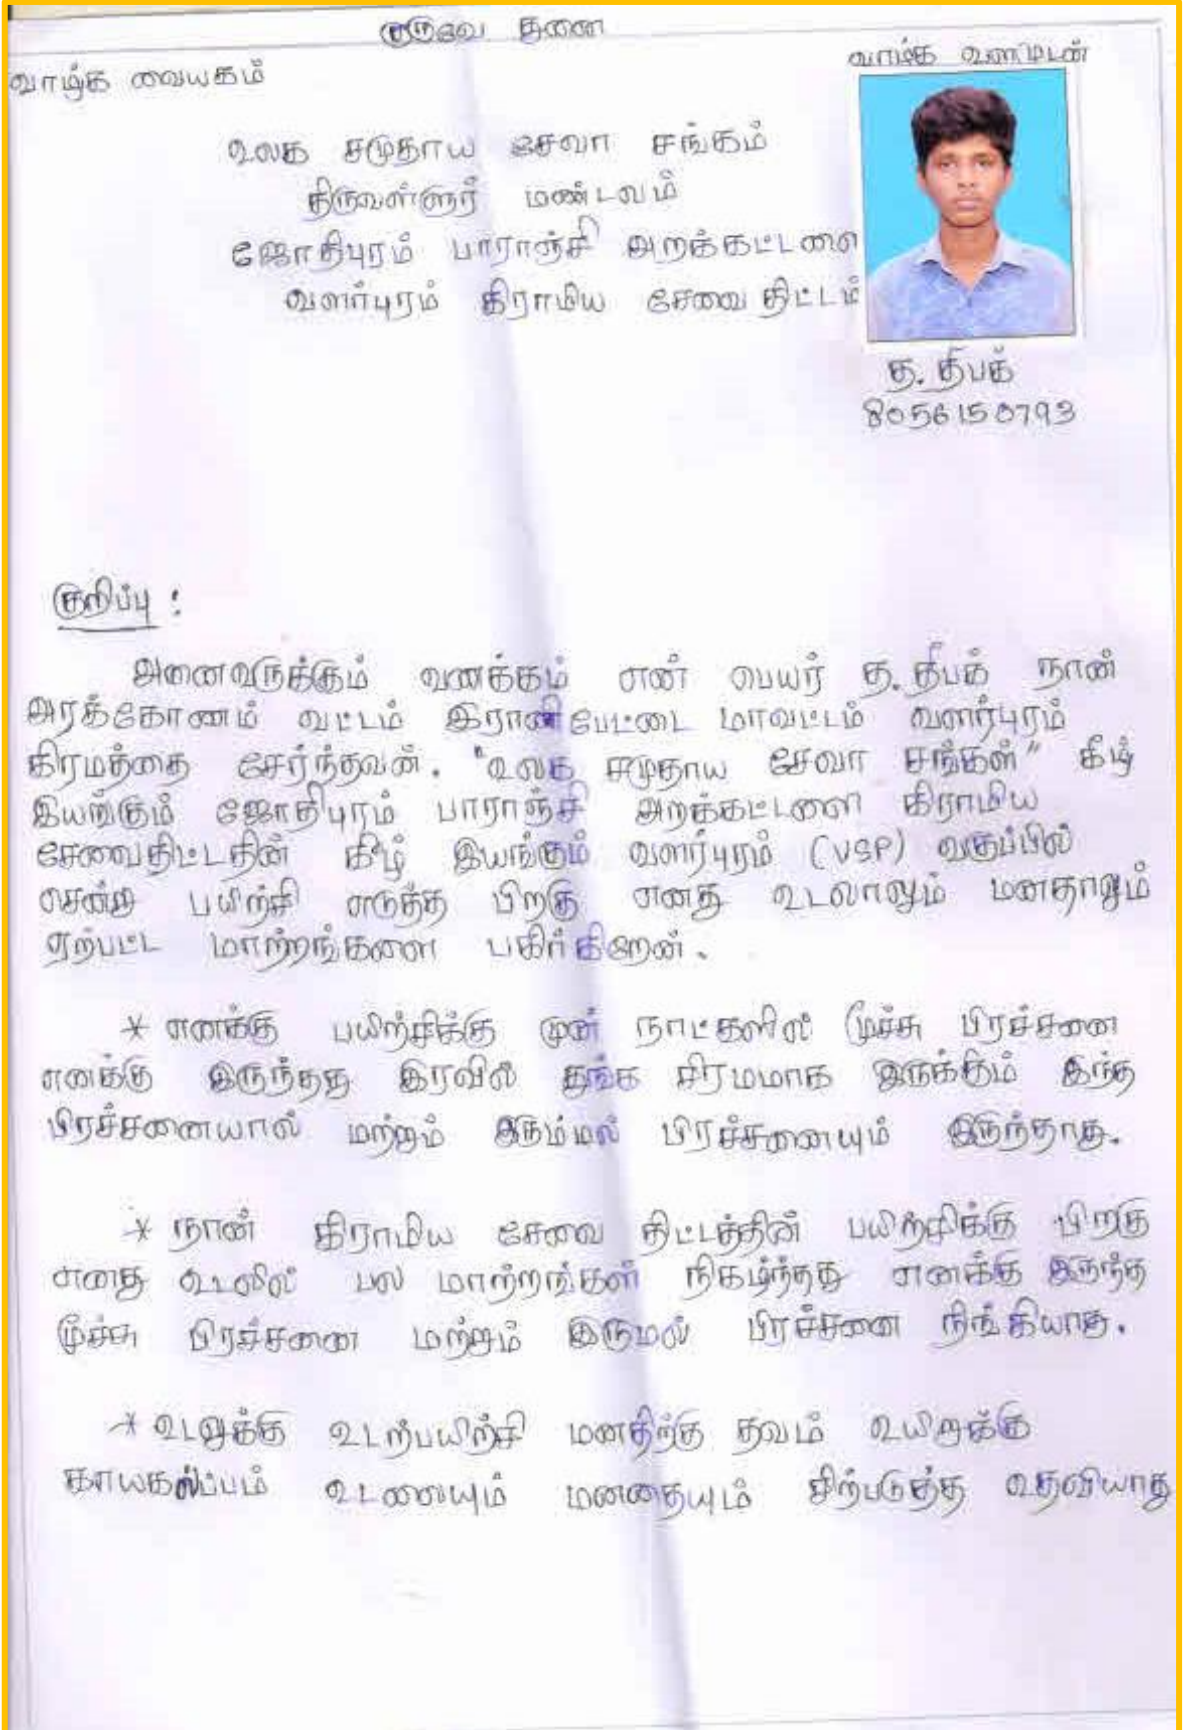 குருவே துணை
வாழ்க வையகம்
வாழ்க வளமுடன்
உலக சமுதாய சேவா சங்கம்
திருவள்ளுர் மண்டலம்
ஜோதிபுரம் பாராஞ்சி அறக்கட்டளை
வளர்புரம் கிராமிய சேவை திட்டம்
த. தீபக்
8056150793
குறிப்பு :
அனைவருக்கும் வணக்கம் என் பெயர் த. தீபக் நான்
அரக்கோணம் வட்டம் இராணிபேட்டை மாவட்டம் வளர்புரம்
கிரமத்தை சேர்ந்தவன். "உலக சமுதாய சேவா சங்கள்" கீழ்
இயங்கும் ஜோதிபுரம் பாராஞ்சி அறக்கட்டளை கிராமிய
சேவைதிட்டதின் கீழ் இயங்கும் வளர்புரம் (VSP) வகுப்பில்
சென்று பயிற்சி எடுத்த பிறகு எனது உடலாலும் மனதாலும்
ஏற்பட்ட மாற்றங்களை பகிர்கிறேன்.
* எனக்கு பயிற்சிக்கு முன் நாட்களில் மூச்சு பிரச்சனை
எனக்கு இருந்தது இரவில் தூங்க சிரமமாக இருக்கும் இந்த
பிரச்சனையால் மற்றும் இரும்மல் பிரச்சனையும் இருந்தாது.
* நான் கிராமிய சேவை திட்டத்தின் பயிற்சிக்கு பிறகு
எனது உடலில் பல மாற்றங்கள் நிகழ்ந்தது எனக்கு இருந்த
மூச்சு பிரச்சனை மற்றும் இருமல் பிரச்சனை நிங்கியாது.
* உடலுக்கு உடற்பயிற்சி மனதிற்கு தவம் உயிறுக்கு
காயகல்ப்பம் உடலையும் மனதையும் சிற்படுத்த உதவியாது